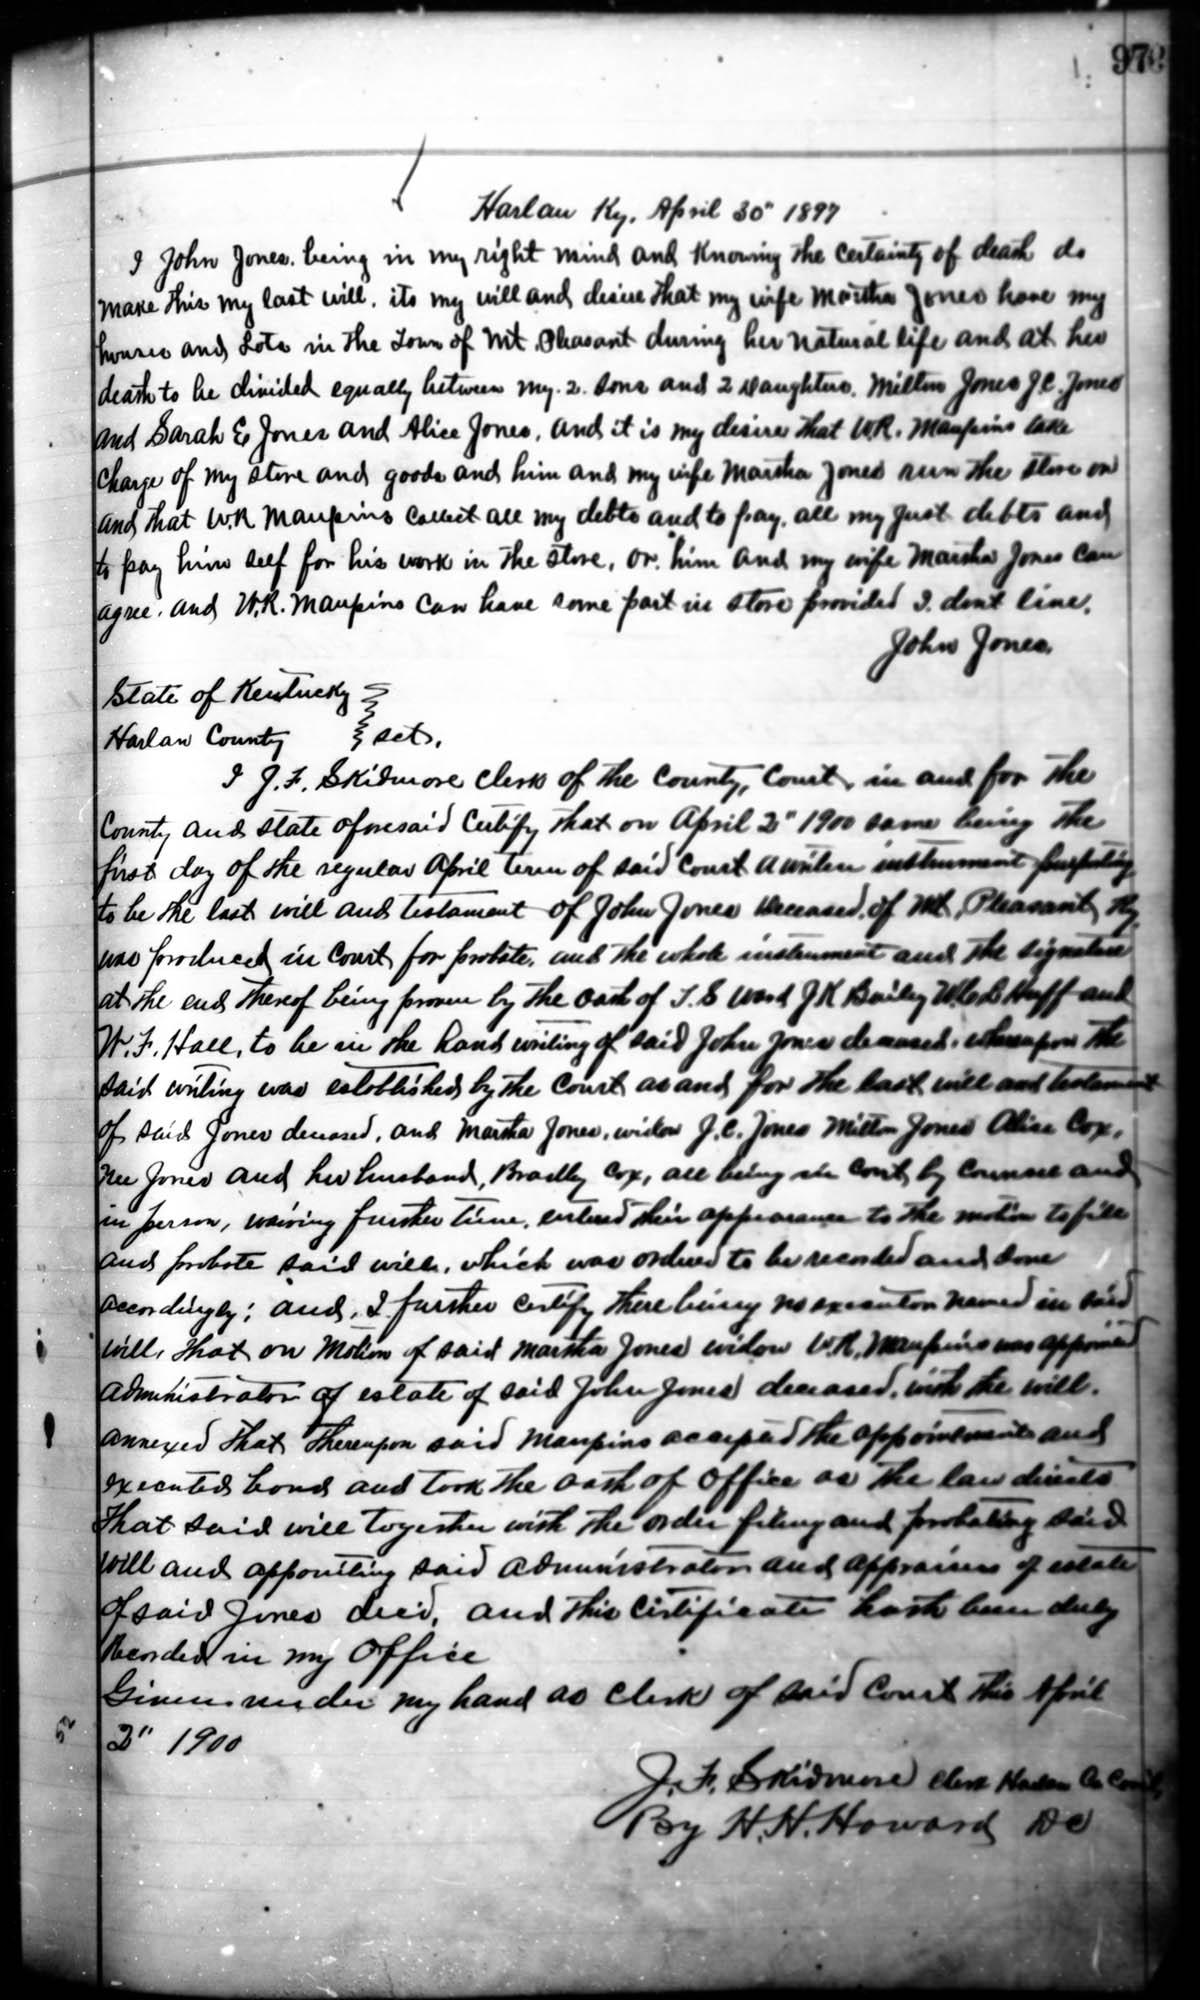 Harlan Ky, April 30" 1897
I John Jones. being in my right mind and Knowing the certainty of death do
make this my last will. its my will and desire that my wife Martha Jones have my
houses and Lots in the Town of Mt Pleasant during her natural life and at her
death to be divided equally between my. 2. sons and 2 Daughters. Milton Jones J.C. Jones
and Sarah E Jones and Alice Jones. and it is my desire that W.R. Maupins take
charge of my store and goods and him and my wife Martha Jones run the store on
and that W.R Maupins collect all my debts and to pay. all my just debts and
to pay him self for his work in the store, or him and my wife Martha Jones can
agree. and W.R. Maupins can have some part in store provided I. dont live.
John Jones.
State of Kentucky
Harlan County sct.
I J. F. Skidmore clerk of the County, Court, in and for the
County and state aforesaid certify that on April 2" 1900 same being the
first day of the regular April term of said Court a writen instrument purporting
to be the last will and testament of John Jones Deceased, of Mt, Pleasant, Ky,
was produced in Court for probate. and the whole instrument and the signature
at the end thereof being proven by the oath of T. S Ward J K Bailey Huff and
W. F. Hall, to be in the hand writing of said John Jones deceased. whereupon the
said writing was established by the Court as and for the last will and testament
of said Jones deceased, and Martha Jones, widow J. C. Jones Milton Jones Alice Cox,
nee Jones and her husband, Bradly Cox, all being in Court by counsel and
in person, waiving further time, entered their appearance to the motion to file
and probate said will, which was ordered to be recorded and done
accordingly; and, I further certify there being no executor named in said
will, that on Motion of said Martha Jones widow W.R. Maupins was appointed
administrator of estate of said John Jones deceased, with the will.
annexed that thereupon said Maupins accepted the appointment and
executed bond and took the oath of office as the law directs
that said will together with the order filing and probating said
will and appointing said administrator and appraisers of estate
of said Jones dec'd, and this certificate hath been duly
Recorded in my Office
Given under my hand as Clerk of said Court this April
2" 1900
J. F. Skidmore Clerk Harlan Co Court
By H. H. Howard DC